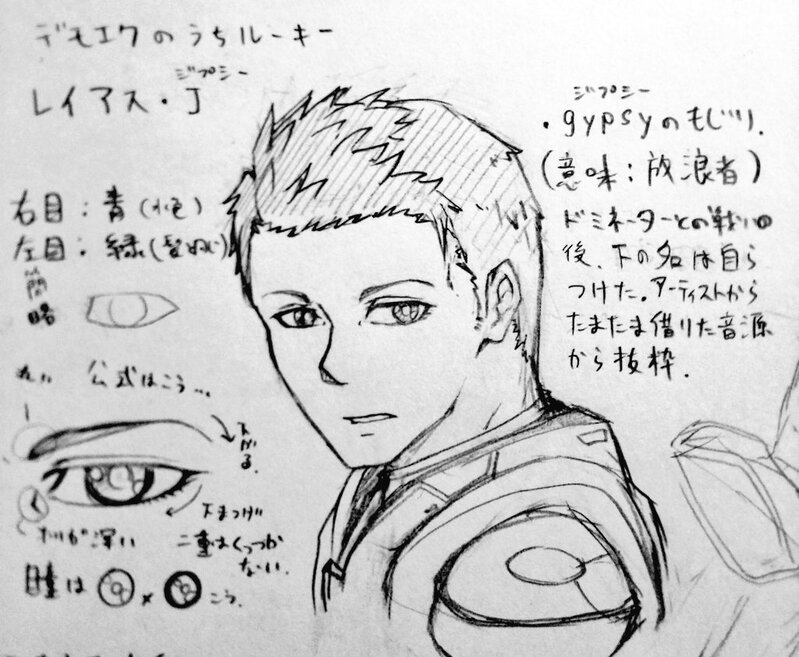 デモエクのうちルーキー
ジプシー
レイアス・J
右目：青(水色)
左目：緑(
簡略
公式はこう...
下がる.
下まつげ
ホリが深い
二重はくっつか
ない.
瞳は × こう.
ジプシー
・gypsyのもじり.
(意味：放浪者)
ドミネーターとの戦いの
後、下の名は自ら
つけた。アーティストから
たまたま借りた音源
から抜粋.